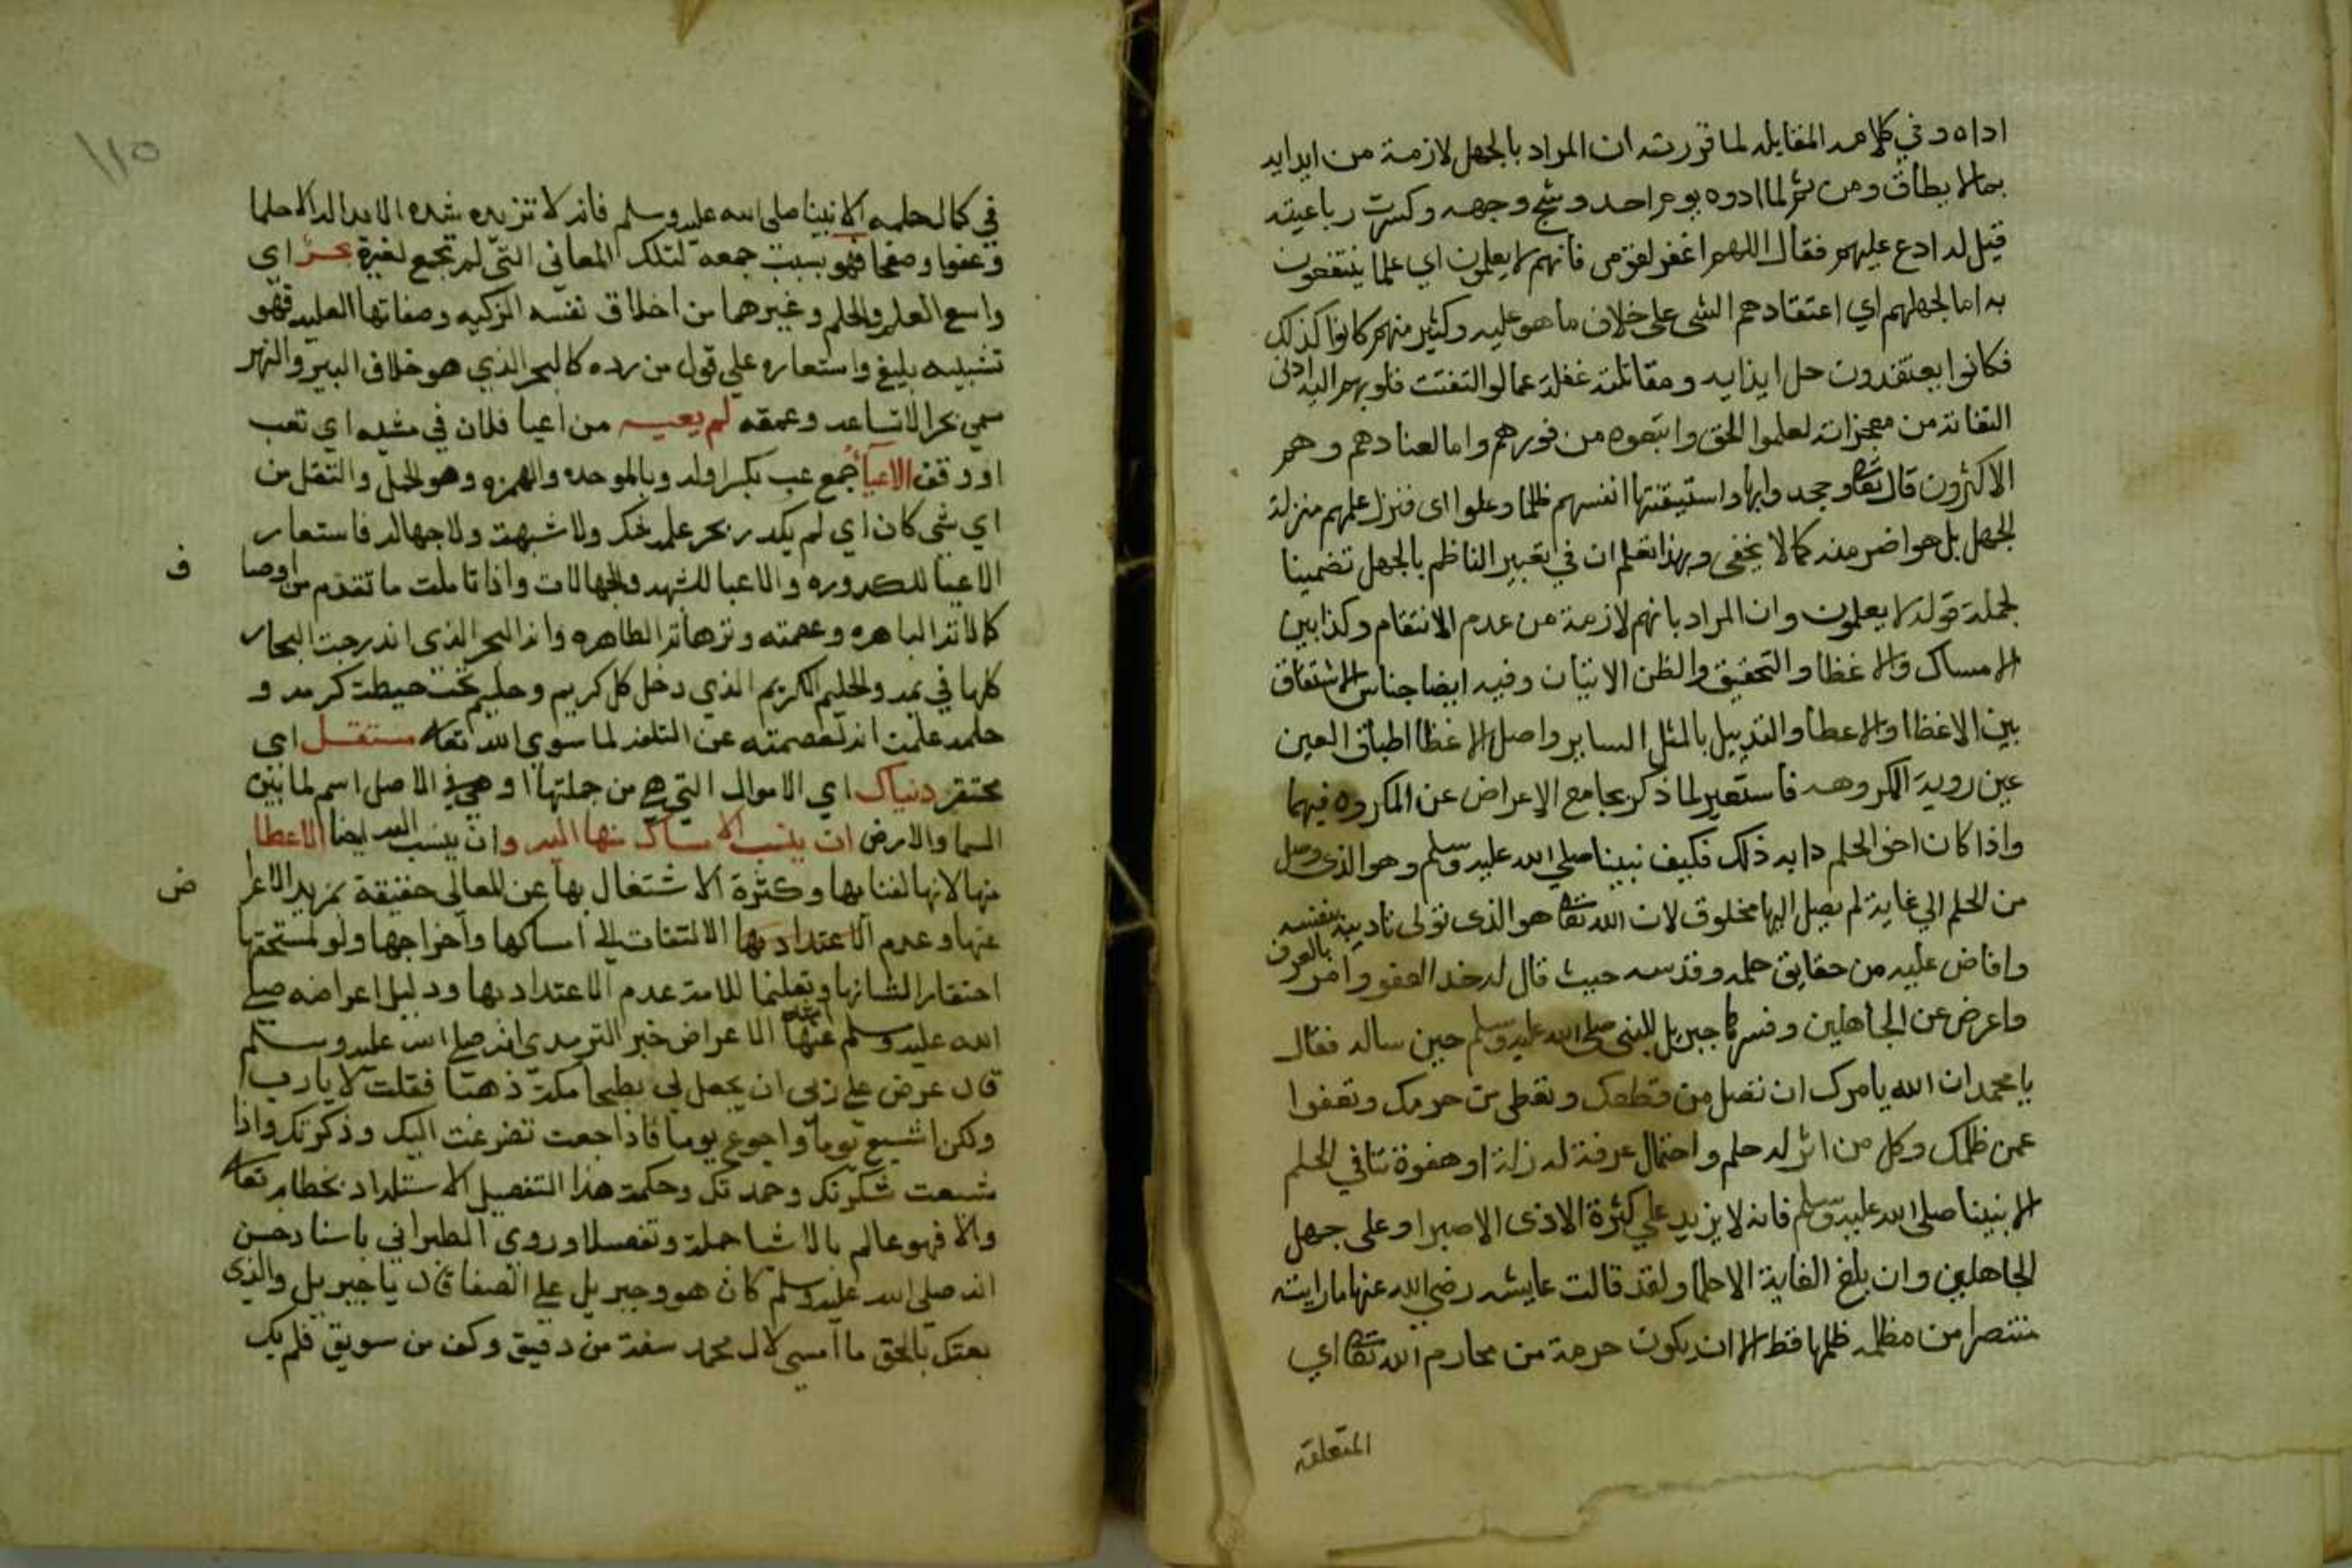 اداه وفي كلامه المقابله لما قررته ان المراد بالجهل لازمة من ايدايه
بما لا يطاق ومن ثم لما ادوه يوم احد وشج وجهه وكسرت رباعيته
قيل له ادع عليهم فقال اللهم اغفر لقومى فانهم لا يعلمون اي علما ينتفعون
به اما لجهلهم اي اعتقادهم الشى على خلاف ما هو عليه وكثير منهم كانوا كذلك
فكانوا يعتقدون حل ايذايه ومقاتلته غفلة عما لو التفتت قلوبهم اليه ادنى
التفاتة من معجزاته لعلموا الحق واتبعوه من فورهم واما لعنادهم وهم
الاكثرون قال تعالى وجحدوا بها واستيقنتها انفسهم ظلما وعلوا اى فنزل علمهم منزلة
الجهل بل هو اضر منه كما لا يخفى وبهذا تعلم ان في تعبير الناظم بالجهل تضمينا
لجملة قوله لا يعلمون وان المراد بانهم لازمة من عدم الانتقام وكذا بين
الامساك والاغظا والتحقيق والظن الاتيان وفيه ايضا جناس الاشتقاق
بين الاغظا والاعطا والتدييل بالمثل الساير واصل الاغظا اطباق العين
عين روية المكروهه فاستعير لما ذكر بجامع الاعراض عن المكروه فيهما
واذا كان اخو الحلم دابه ذلك فكيف نبينا صلى الله عليه وسلم وهو الذى وصل
من الحلم الي غاية لم يصل اليها مخلوق لان الله تعالى هو الذى تولى تاديبه بنفسه
وافاض عليه من حقايق حلمه وقدسه حيث قال له خذ العفو وامر بالعرف
واعرض عن الجاهلين وفسرها جبريل للنبى صلى الله عليه وسلم حين ساله فقال
يا محمد ان الله يامرك ان تصل من قطعك وتعطى من حرمك وتعفوا
عمن ظلمك وكل من اثر له حلم واحتمال عرفة له زلة او هفوة تنافي الحلم
الا نبينا صلى الله عليه وسلم فانه لا يزيد علي كثرة الاذى الا صبرا وعلى جهل
الجاهلين وان بلغ الغاية الا حلما ولقد قالت عايشه رضي الله عنها ما رايته
منتصرا من مظلمه ظلمها قط الا ان يكون حرمة من محارم الله تعالى اي
المتعلقة
١١٥
في كمال حلمه الا نبينا صلى الله عليه وسلم فانه لا تزيده شده الا حلما
وعفوا وصفحا فهو بسبب جمعه لتلك المعاني التي لم تجمع لغيره بحر اي
واسع العلم والحلم وغيرهما من اخلاق نفسه الزكيه وصفاتها العليه فهو
تشبيه بليغ واستعاره علي قول من رده كالبحر الذي هو خلاف البير والنهر
سمي بحرا لاتساعه وعمقه لم يعيه من اعيا فلان في مشيه اي تعب
او وقف الاعيا جمع عب بكسر اوله وبالموحده والهمزه وهو الحمل والثقل من
اي شى كان اي لم يكدر بحر علمه ولا شبهة ولا جهاله فاستعار
الاعيا للكدوره والاعبا للشبهه والجهالات واذا تاملت ما تقدم من اوصا
ف
كمالاته الباهره وعصمته ونزهاته الطاهره وانه البحر الذى اندرجت البحار
كلها في يمه والحليم الكريم الذي دخل كل كريم وحليم تحت حيطة كرمه و
حلمه علمت انه لعصمته عن التلفت لما سوي الله تعالى مستقل اى
محتقر دنياك اي الاموال التي هي من جملتها او هي في الاصل اسم لما بين
السما والارض ان ينسب الامساك منها اليه وان ينسب اليه ايضا الاعطا
منها لانها لفنايها وكثرة الاشتغال بها عن المعالى حقيقة بمزيد الاعرا
ض
عنها وعدم الاعتداد بها الالتفات الي امساكها واخراجها ولو لمستحقها
احتقارا لشانها وتعليما للامة عدم الاعتداد بها ودليل اعراضه صلى
الله عليه وسلم عنها الاعراض خبر الترمدى انه صلى الله عليه وسلم
قال عرض علي ربى ان يجعل لي بطحا مكة ذهبا فقلت لا يا رب
ولكن اشبع يوما واجوع يوما فاذا جعت تضرعت اليك وذكرتك واذا
شبعت شكرتك وحمدتك وحكمة هذا التفصيل الاستلداد بخطابه تعالى
والا فهو عالم بالاشيا جملة وتفصيلا وروى الطبراني باسناد حسن
انه صلى الله عليه وسلم كان هو وجبريل علي الصفا قال يا جبريل والذي
بعتك بالحق ما امسى لال محمد سفة من دقيق وكف من سويق فلم يك